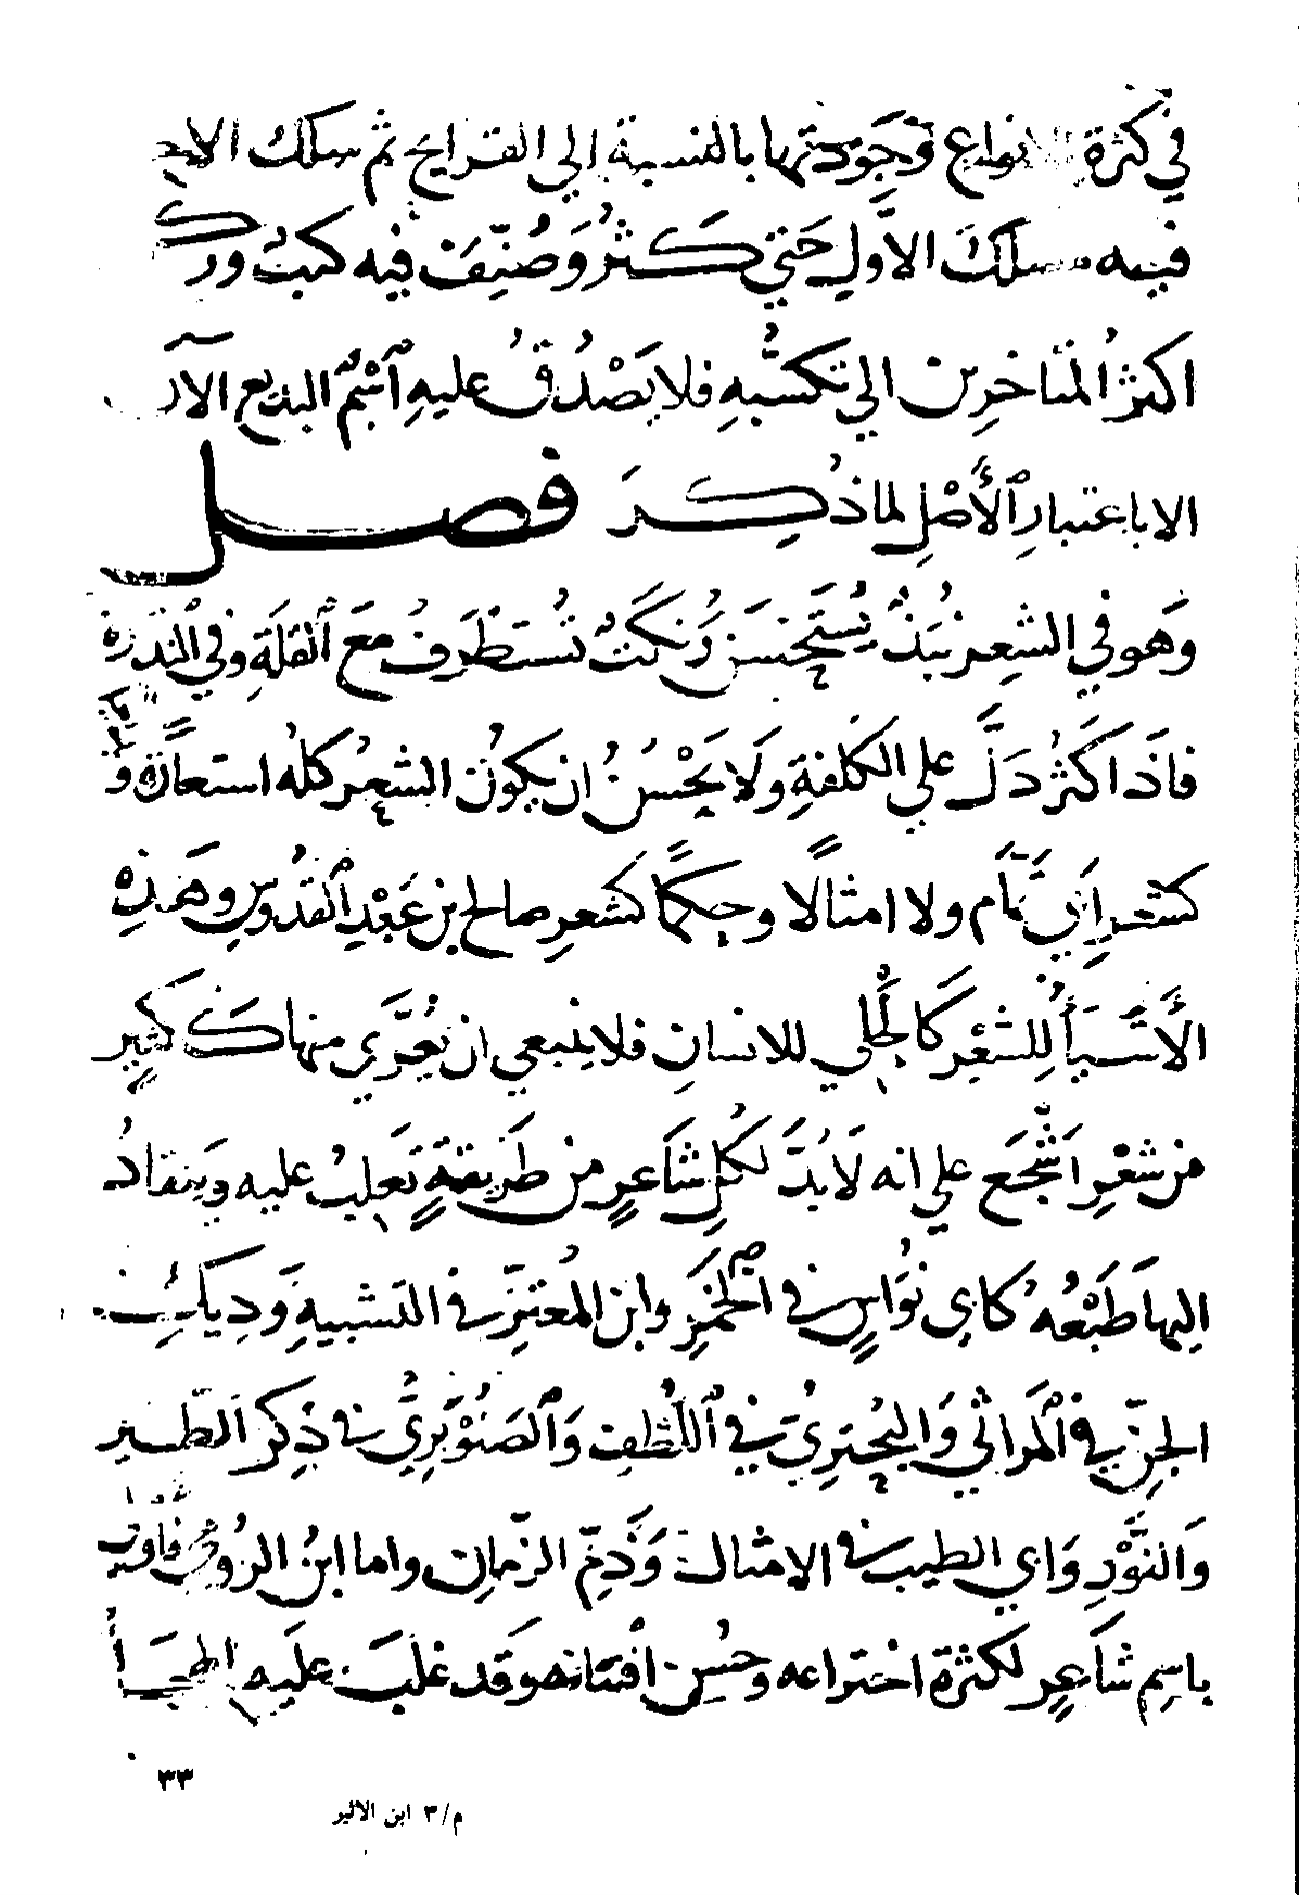 في كثرة الانواع وَجَوْدتها بالنسبة الي القرايح ثم سلك الاخِر
فيه مسلك الاوَّلِ حَتي كَثُرَ وَصُنِّفَ فيه كتبٌ ورَكَن
اكثرُ المتَاخرِين الي تكسُّبهِ فلا يَصْدُقُ عليهِ ٱسْمُ البديع الآن
الا باعتبارِ ٱلْأَصْلِ لما ذُكِرَ فصل
وَهو في الشعِرِ نُبَذٌ يُسْتَحْسَنُ وَنُكَتٌ تُسْتَظْرَفُ مَعَ ٱلقلَةِ وفي ٱلنَدَرَة
فاذَا كَثُرَ دَلَّ علي الكُلفةِ ولَا يَحْسُنُ ان يكونُ الشعِرُ كلهُ استعارةً
كشعرِ ابَي تمَّام ولا امثالًا وحِكَمًا كشعرِ صالح بن عَبْدِ ٱلقدُّوسِ وهَذِهِ
الأَشَيأُ لِلشعْرِ كَالحُلي للانسانِ فلا ينبغي ان يُعَرَّي منها كَثيرٍ
من شعْرِ اشْجَع علي انه لَا بُدَّ لكُلِ شاَعرٍ من طَريقةٍ تَغلبُ عليه وَينقادُ
اليها طَبْعُهُ كَابي نُوَاسٍ في الخمَرِ وابن المُعتزِّ في التشبيهِ وَديكِ
الجنِّ في ٱلمَراثي وَالبُحتريِّ في ٱللُطفِ وَٱلصَنَوْبَريِّ في ذِكر الطَّير
وَالنَّوْرِ وَابي الطيب في الامثال وَذَمِّ الزّمانِ واما ابنُ الرُومي فاولي
باسِم شاَعِرٍ لكثرة اختراعه وحُسِن افْتنانه وقَد غلَبَ علَيه الهجَأُ
٣٣
م/٣ ابن الاثير